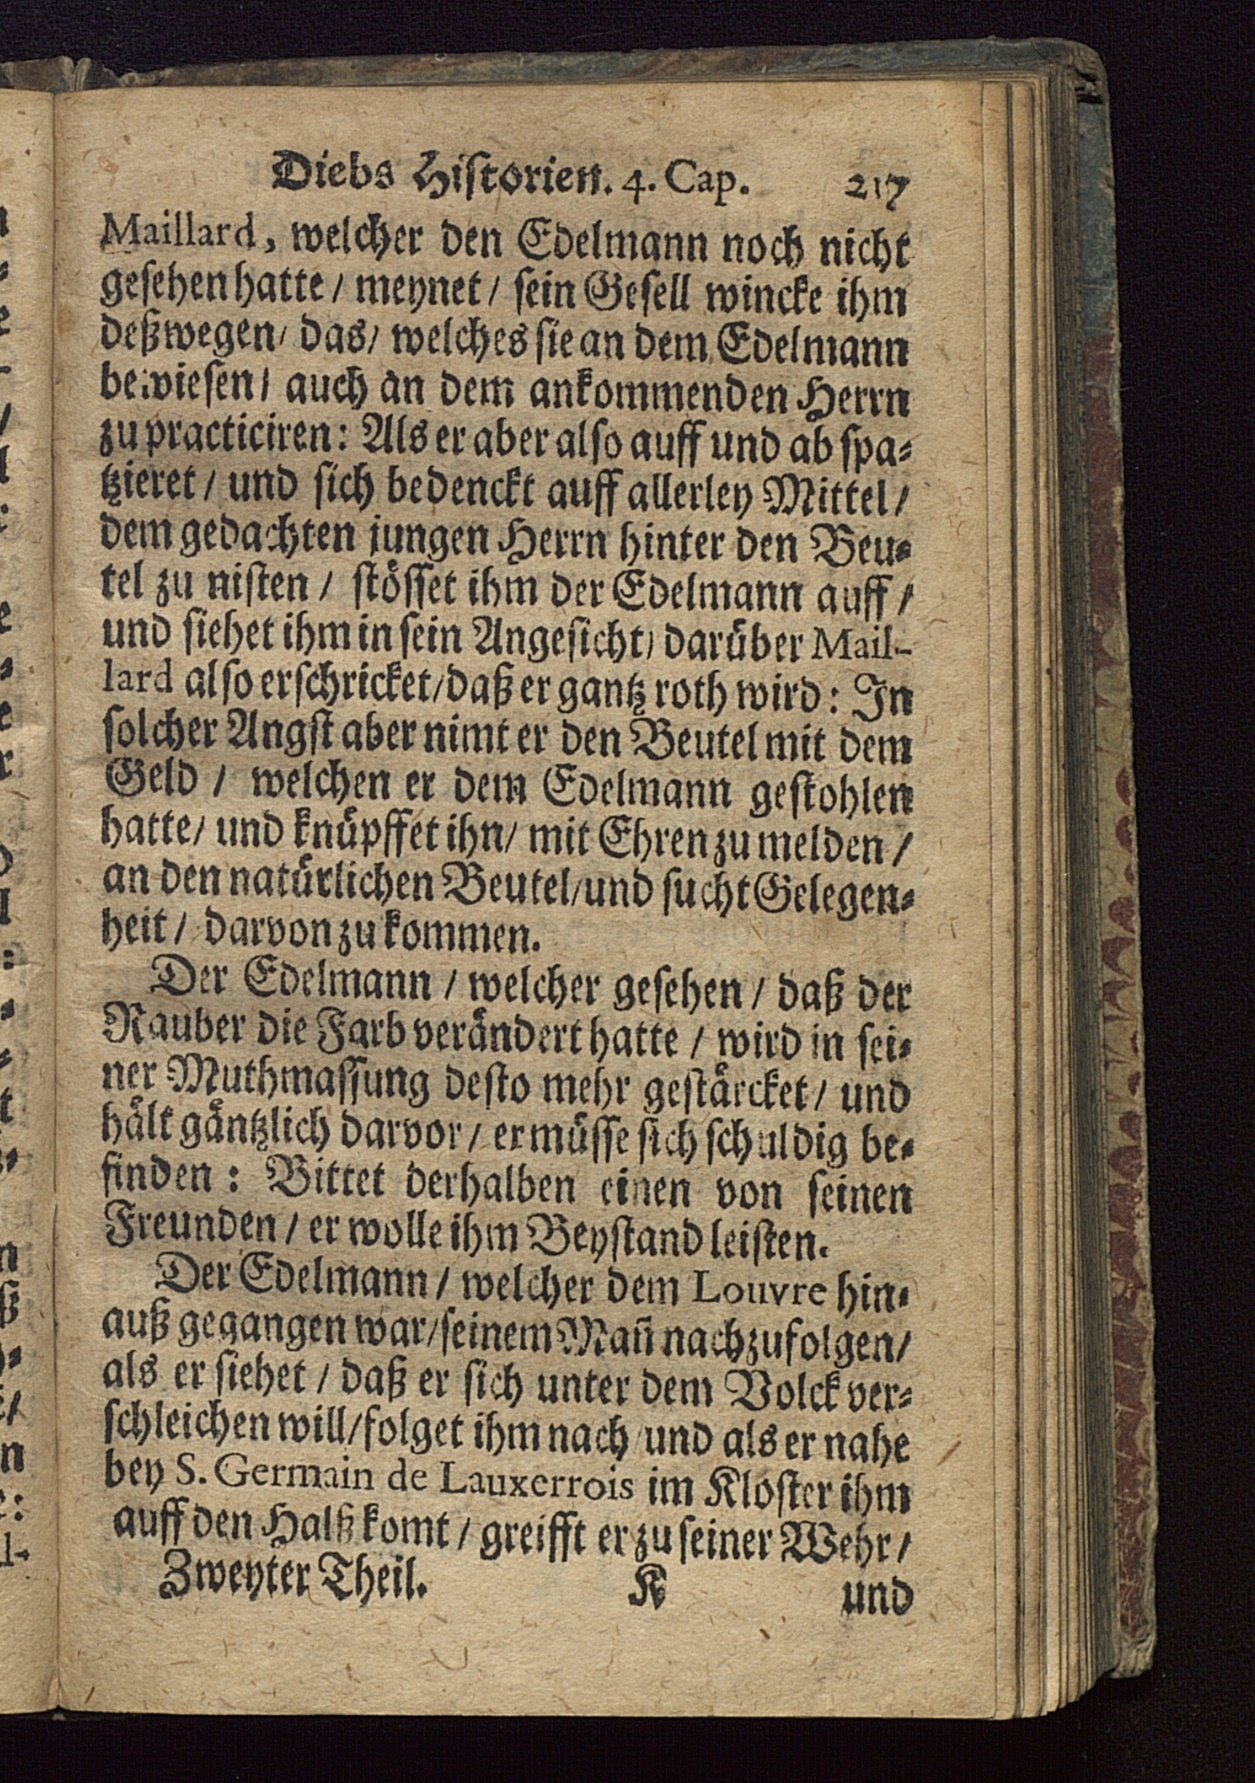 Diebs Historien. 4. Cap. 217
Maillard, welcher den Edelmann noch nicht
gesehen hatte / meynet / sein Gesell wincke ihm
deßwegen / das / welches sie an dem Edelmann
bewiesen / auch an dem ankommenden Herrn
zu practiciren: Als er aber also auff und ab spa-
tzieret / und sich bedenckt auff allerley Mittel /
dem gedachten jungen Herrn hinter den Beu-
tel zu nisten / stösset ihm der Edelmann auff /
und siehet ihm in sein Angesicht / darüber Mail-
lard also erschricket / daß er gantz roth wird: In
solcher Angst aber nimt er den Beutel mit dem
Geld / welchen er dem Edelmann gestohlen
hatte / und knüpffet ihn / mit Ehren zu melden /
an den natürlichen Beutel / und sucht Gelegen-
heit / darvon zu kommen.
Der Edelmann / welcher gesehen / daß der
Rauber die Farb verändert hatte / wird in sei-
ner Muthmassung desto mehr gestärcket / und
hält gäntzlich darvor / er müsse sich schuldig be-
finden: Bittet derhalben einen von seinen
Freunden / er wolle ihm Beystand leisten.
Der Edelmann / welcher dem Louvre hin-
auß gegangen war / seinem Mañ nachzufolgen /
als er siehet / daß er sich unter dem Volck ver-
schleichen will / folget ihm nach / und als er nahe
bey S. Germain de Lauxerrois im Kloster ihm
auff den Halß komt / greifft er zu seiner Wehr /
Zweyter Theil. K und